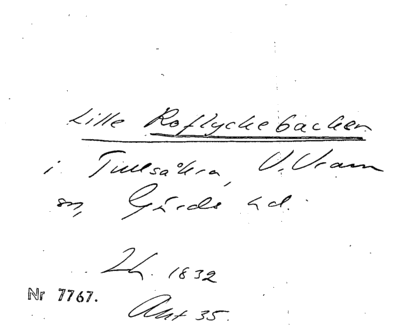 Lille Roflyckebacken
i Tullsåkra, V. Vram
sn, Gärds hd.
Lh. 1832
Akt 35.
Nr 7767.